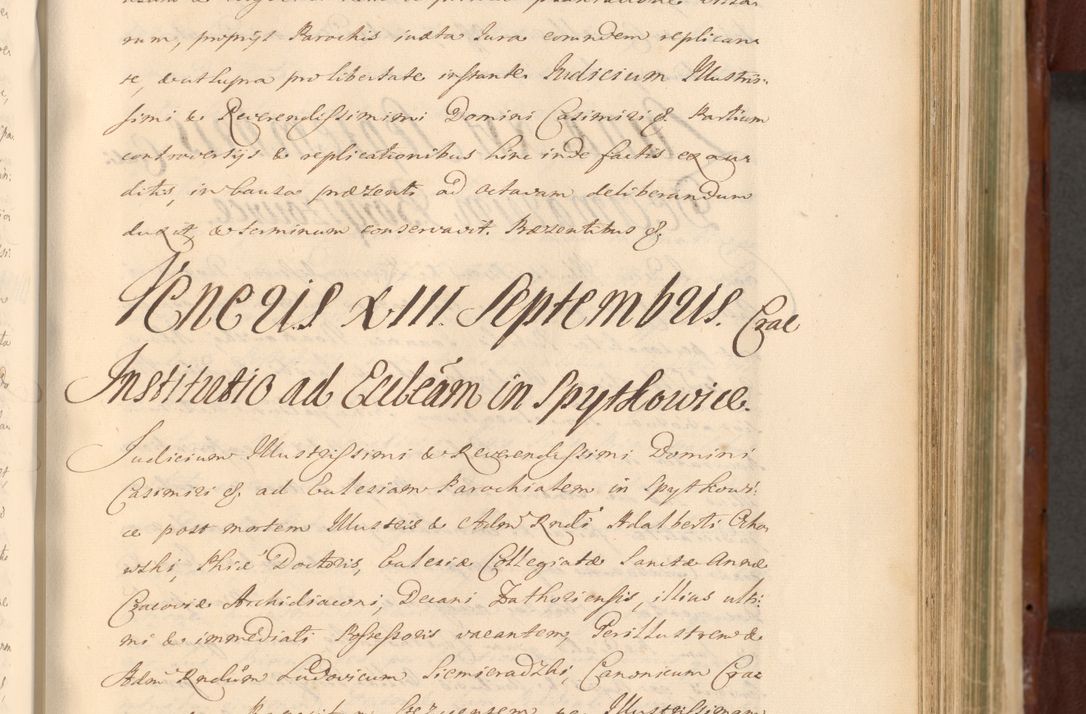 rum, proprijs Parochis iuxta Iura eorundem replican
te, & ut supra pro libertate instante Iudicium Illustris:
simi & Reverendissimi Domini Casimiri &. Partium
controversijs & replicationibus hinc inde factis exau
ditis, in Causa præsenti ad octavam deliberandum
duxit & terminum conservavit. Præsentibus &.
Veneris XIII. Septembris. Crac
Institutio ad Ecclēām in Spytkowice.
Iudicium Illustrissimi & Reverendissimi Domini
Casimiri &. ad Eclesiam Parochialem in Spytkowi:
ce post mortem Illustris & Adm Rndi Adalberti
Phiæ Doctoris, Eclesiæ Collegiatæ Sanctæ Annæ
Cracoviæ Archidiaconi, Decani Zathoriensis, illius ulti:
mi & immediati Possessoris vacantem, Perillustrem &
Adm Rndum Ludovicum Siemieradzki, Canonicum Crac